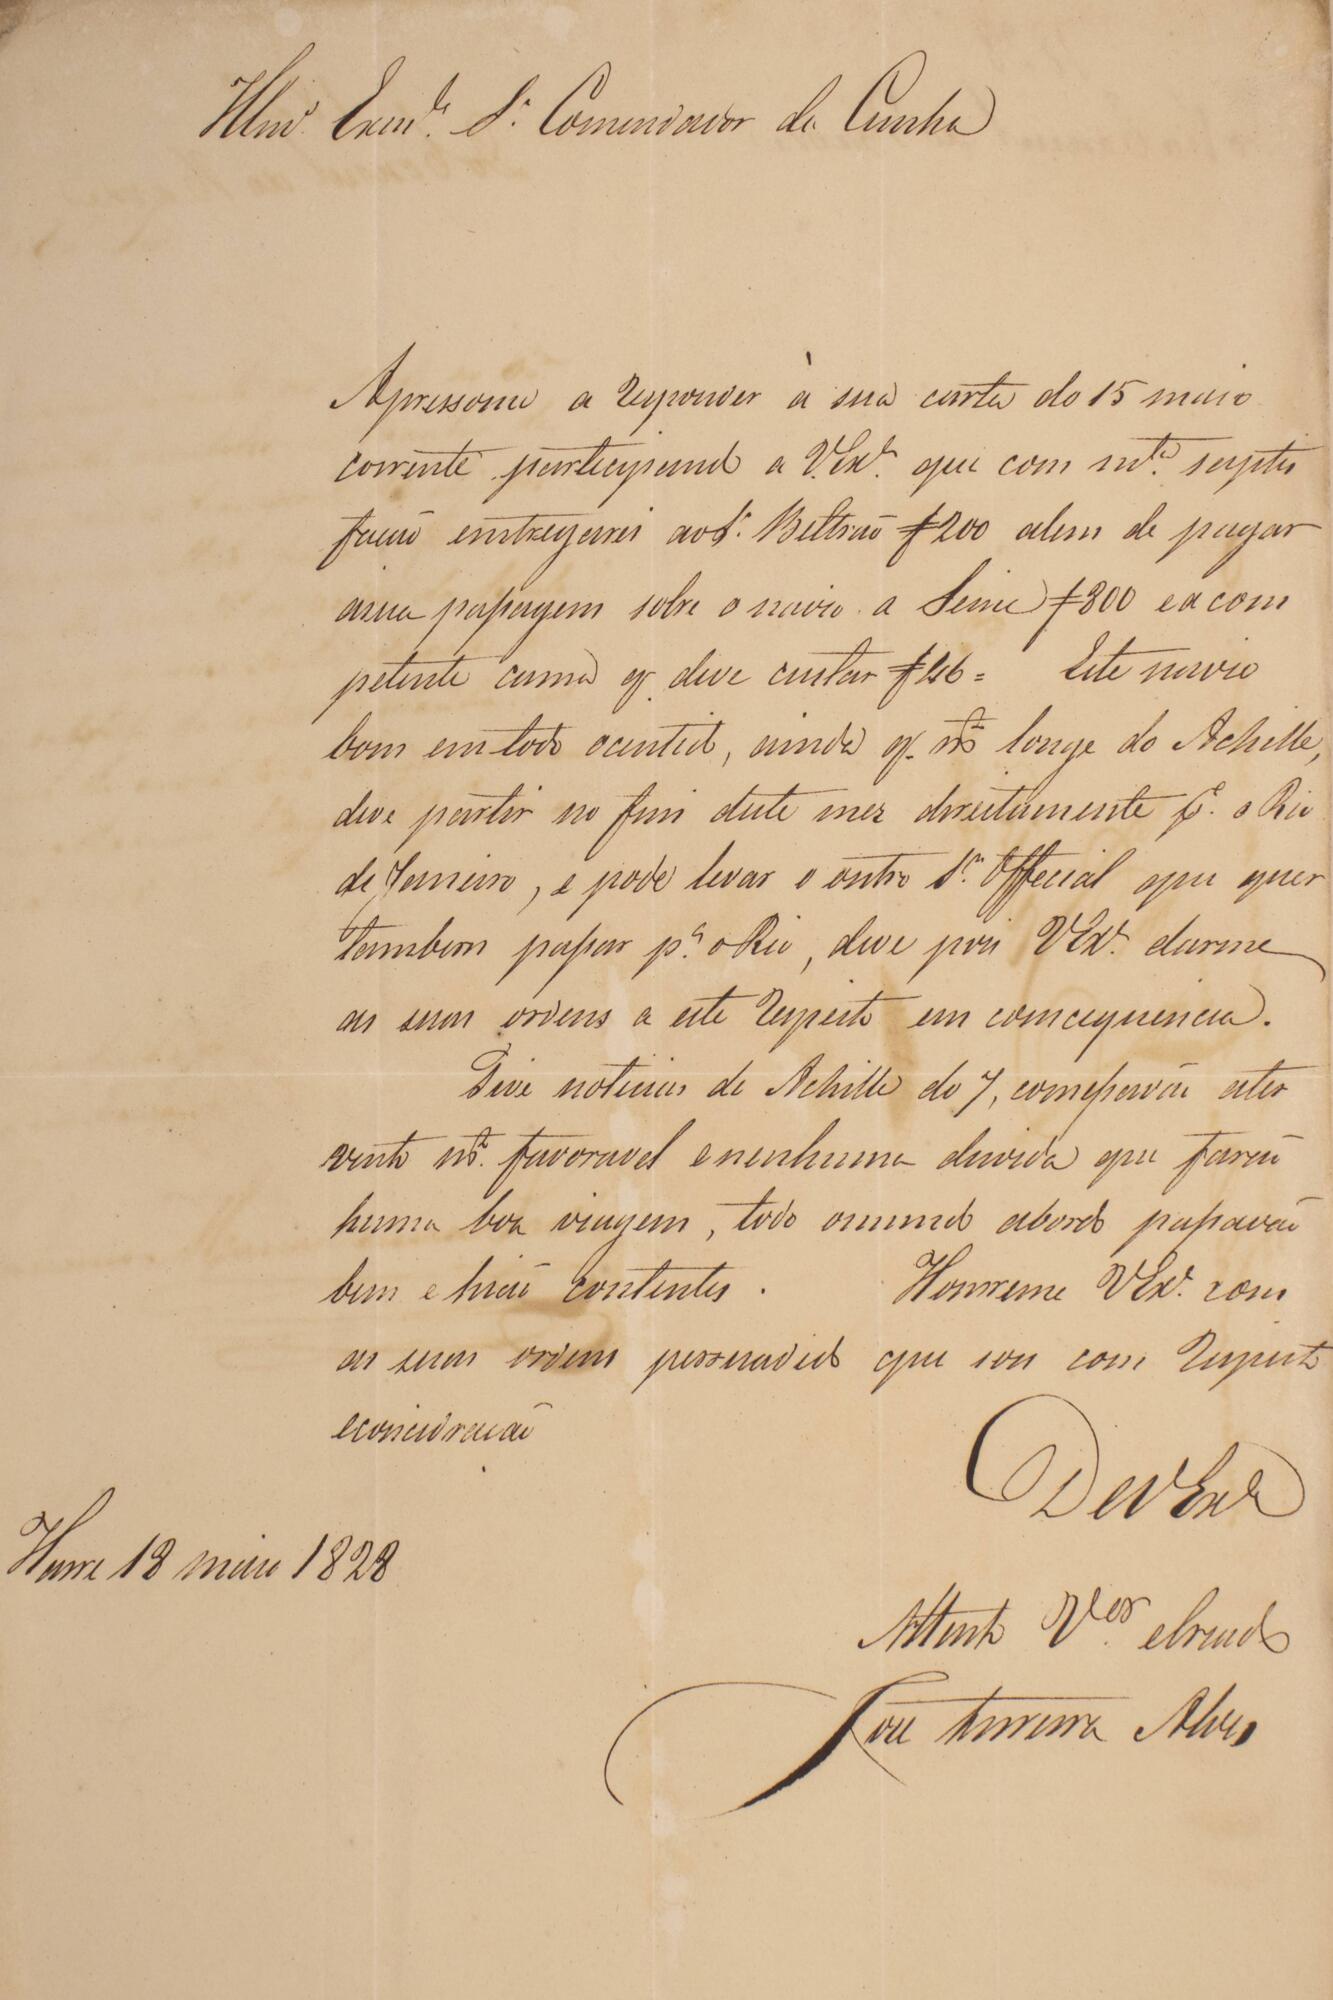 Illmo. Exmo. Sr. Comendador da Cunha
Apressome a responder à sua carta do 15 maio
corrente participando a V.Exa. que com mta. satis
facaõ entregarei aoSr. Beltraõ f200 alem de pagar
asua passagem sobre o navio a Seine f800 eacom
petente cama q. deve custar f46= Este navio
bom em todo ocentido, ainda q. mto. longe do Achille,
deve partir no fim deste mez direitamente pa. o Rio
de Janeiro, e pode levar o outro Sr. Official que quer
tambem passar pa. oRio, deve pois VExa. darme
as suas ordens a este respeito em comcequencia.
Tive noticias de Achille do 7, comessavaõ ater
vento mto. favoravel enenhuma duvida que faraõ
huma boa viagem, todo omundo abordo passavaõ
bem e hiaõ contentes. Honreme VExa. com
as suas ordens perssuadido que sou com respeito
econcidracaõ
De VExa
Havre 18 maio 1828
Attento Vor. eCreado
José Ferreira Alves